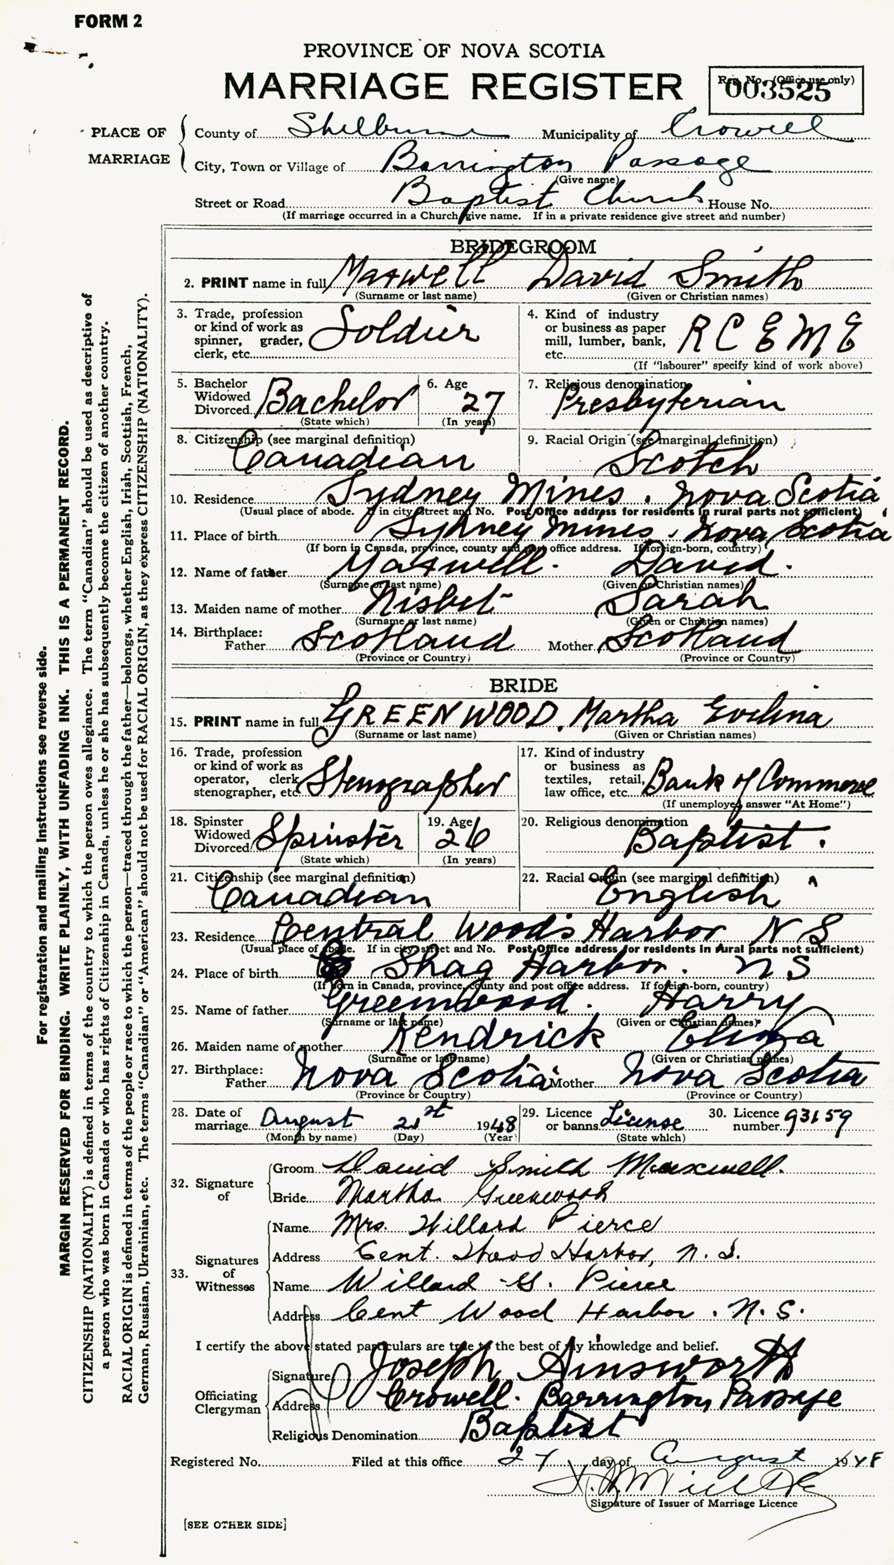 FORM 2
PROVINCE OF NOVA SCOTIA
MARRIAGE REGISTER
Reg. No. (Office use only)
003525
PLACE OF MARRIAGE
County of Shelburne Municipality of Crowell
City, Town or Village of Barrington Passage
(Give name)
Street or Road Baptist Church House No.
(If marriage occurred in a Church give name. If in a private residence give street and number)
BRIDEGROOM
2. PRINT name in full Maxwell David Smith
(Surname or last name) (Given or Christian names)
3. Trade, profession or kind of work as spinner, grader, clerk, etc. Soldier
4. Kind of industry or business as paper mill, lumber, bank, etc. R C E M E
(If "labourer" specify kind of work above)
5. Bachelor Widowed Divorced Bachelor
(State which)
6. Age 27
(In years)
7. Religious denomination Presbyterian
8. Citizenship (see marginal definition) Canadian
9. Racial Origin (see marginal definition) Scotch
10. Residence Sydney Mines, Nova Scotia
(Usual place of abode. If in city street and No. Post Office address for residents in rural parts not sufficient)
11. Place of birth Sydney Mines, Nova Scotia
(If born in Canada, province, county and post office address. If foreign-born, country)
12. Name of father Maxwell. David.
(Surname or last name) (Given or Christian names)
13. Maiden name of mother Nisbet Sarah
(Surname or last name) (Given or Christian names)
14. Birthplace: Father Scotland Mother Scotland
(Province or Country) (Province or Country)
BRIDE
15. PRINT name in full GREENWOOD, Martha Evelina
(Surname or last name) (Given or Christian names)
16. Trade, profession or kind of work as operator, clerk, stenographer, etc. Stenographer
17. Kind of industry or business as textiles, retail, law office, etc. Bank of Commerce
(If unemployed answer "At Home")
18. Spinster Widowed Divorced Spinster
(State which)
19. Age 26
(In years)
20. Religious denomination Baptist.
21. Citizenship (see marginal definition) Canadian
22. Racial Origin (see marginal definition) English
23. Residence Central Woods Harbor N S
(Usual place of abode. If in city street and No. Post Office address for residents in rural parts not sufficient)
24. Place of birth Shag Harbor. N S
(If born in Canada, province, county and post office address. If foreign-born, country)
25. Name of father Greenwood. Harry
(Surname or last name) (Given or Christian names)
26. Maiden name of mother Kendrick Eliza
(Surname or last name) (Given or Christian names)
27. Birthplace: Father Nova Scotia Mother Nova Scotia
(Province or Country) (Province or Country)
28. Date of marriage August 21st 1948
(Month by name) (Day) (Year)
29. Licence or banns License
(State which)
30. Licence number 93159
32. Signature of
Groom David Smith Maxwell.
Bride Martha Greenwood
33. Signatures of Witnesses
Name Mrs. Willard Pierce
Address Cent. Wood Harbor, N.S.
Name Willard G. Pierce
Address Cent Wood Harbor. N.S.
I certify the above stated particulars are true to the best of my knowledge and belief.
Officiating Clergyman
Signature Joseph Ainsworth
Address Crowell. Barrington Passage
Religious Denomination Baptist
Registered No. Filed at this office 27 day of August 1948
Signature of Issuer of Marriage Licence
[SEE OTHER SIDE]
For registration and mailing instructions see reverse side.
MARGIN RESERVED FOR BINDING. WRITE PLAINLY, WITH UNFADING INK. THIS IS A PERMANENT RECORD.
CITIZENSHIP (NATIONALITY) is defined in terms of the country to which the person owes allegiance. The term "Canadian" should be used as descriptive of
a person who was born in Canada or who has rights of Citizenship in Canada, unless he or she has subsequently become the citizen of another country.
RACIAL ORIGIN is defined in terms of the people or race to which the person—traced through the father—belongs, whether English, Irish, Scottish, French,
German, Russian, Ukrainian, etc. The terms "Canadian" or "American" should not be used for RACIAL ORIGIN, as they express CITIZENSHIP (NATIONALITY).